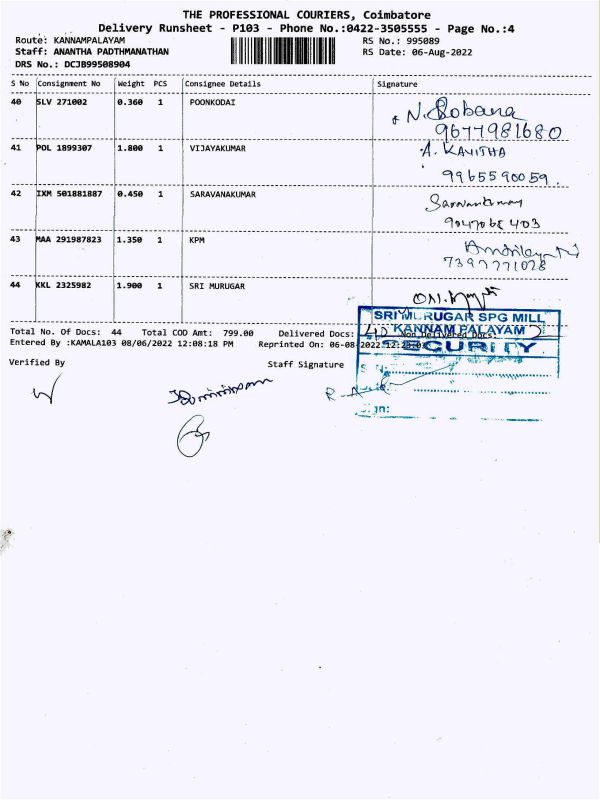 THE PROFESSIONAL COURIERS, Coimbatore
Delivery Runsheet - P103 - Phone No.:0422-3505555 - Page No.:4
Route: KANNAMPALAYAM RS No.: 995089
Staff: ANANTHA PADTHMANATHAN RS Date: 06-Aug-2022
DRS No.: DCJB99508904
S No Consignment No Weight PCS Consignee Details Signature
40 SLV 271002 0.360 1 POONKODAI N. Sobana
9677981680
41 POL 1899307 1.800 1 VIJAYAKUMAR A. KAVITHA
9965590059.
42 IXM 501881887 0.450 1 SARAVANAKUMAR
43 MAA 291987823 1.350 1 KPM
7397771028
44 KKL 2325982 1.900 1 SRI MURUGAR
SRI MURUGAR SPG MILL
Total No. Of Docs: 44 Total COD Amt: 799.00 Delivered Docs: Non Delivered Docs:
KANNAM PALAYAM
Entered By :KAMALA103 08/06/2022 12:08:18 PM Reprinted On: 06-08-2022
SECURITY
Verified By Staff Signature
Sign: